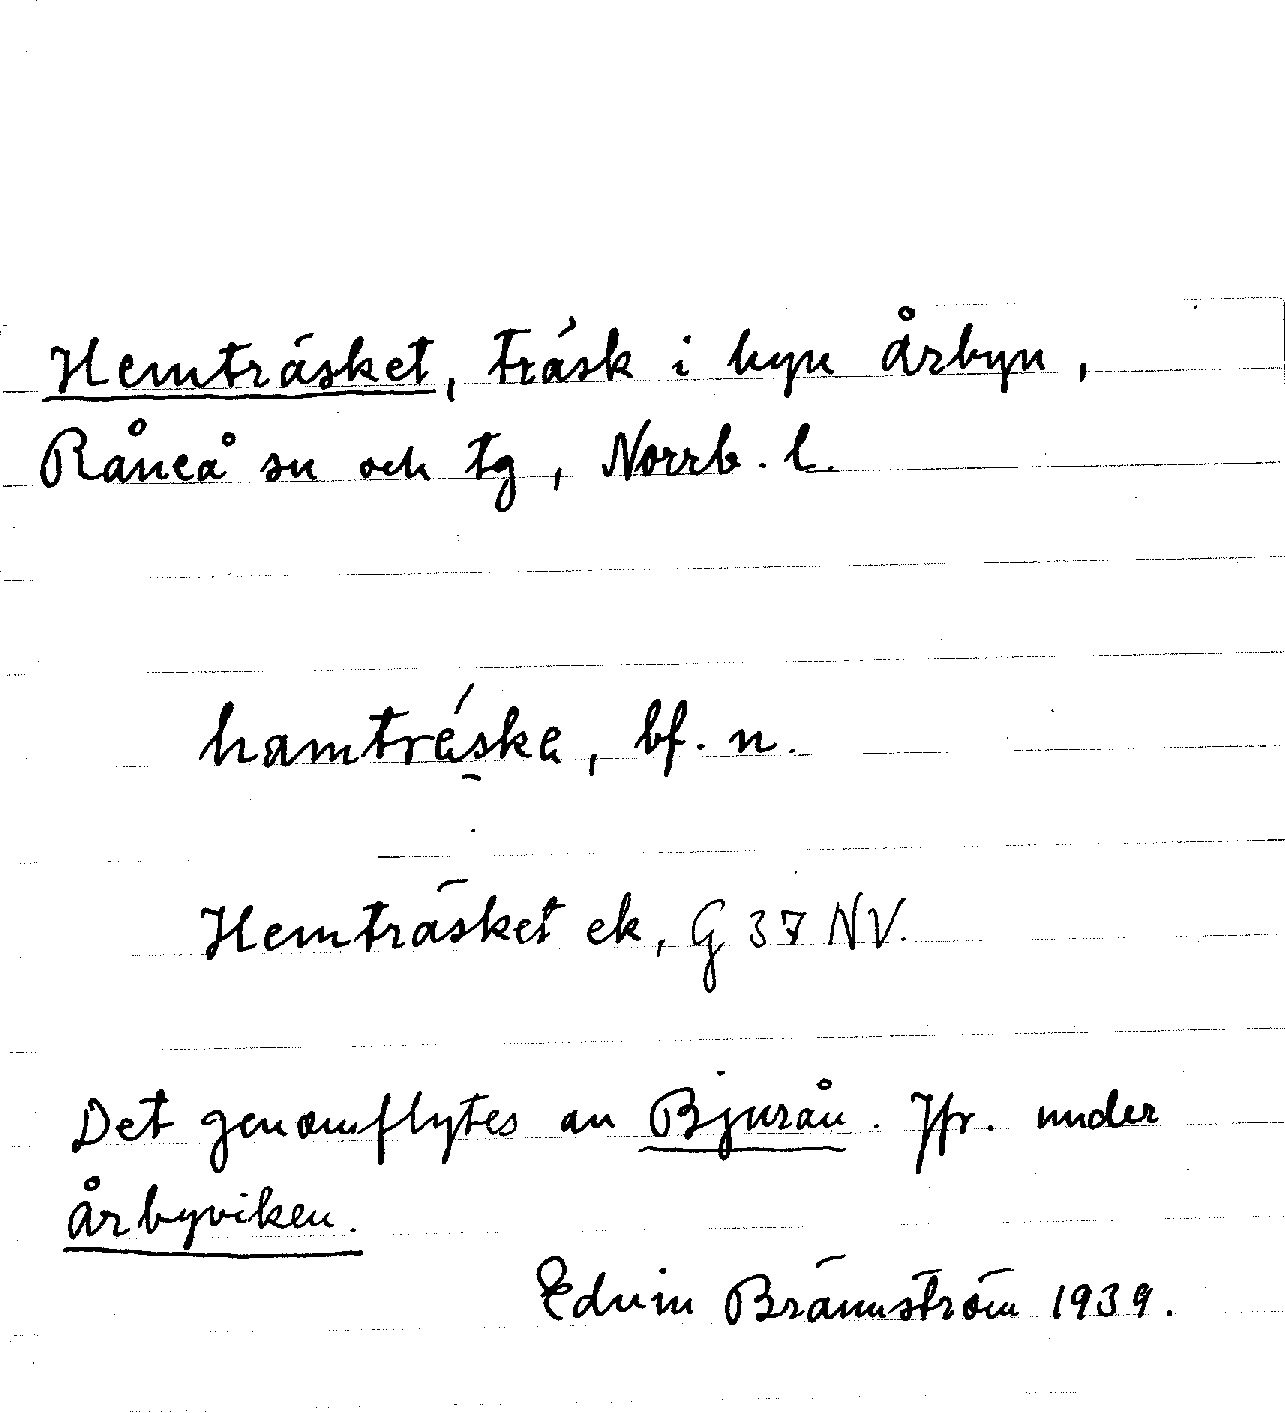 Hemträsket, träsk i byn Årbyn,
Råneå sn och tg, Norrb. l.
hamtréska, bf. n.
Hemträsket ek, G 37 NV.
Det genomflytes av Bjurån. Jfr. under
Årbyviken.
Edvin Brännström 1939.